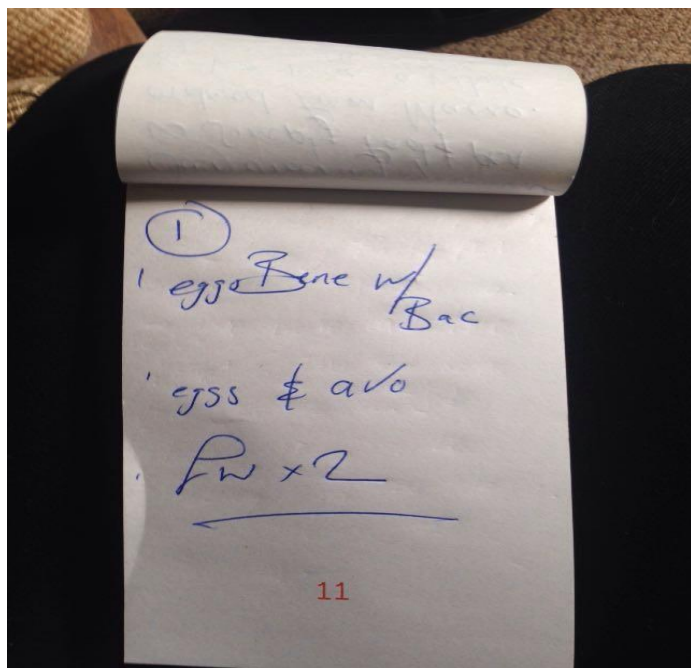 1
1 eggs Bene w/
Bac
1 egss & avo
fw x 2
11